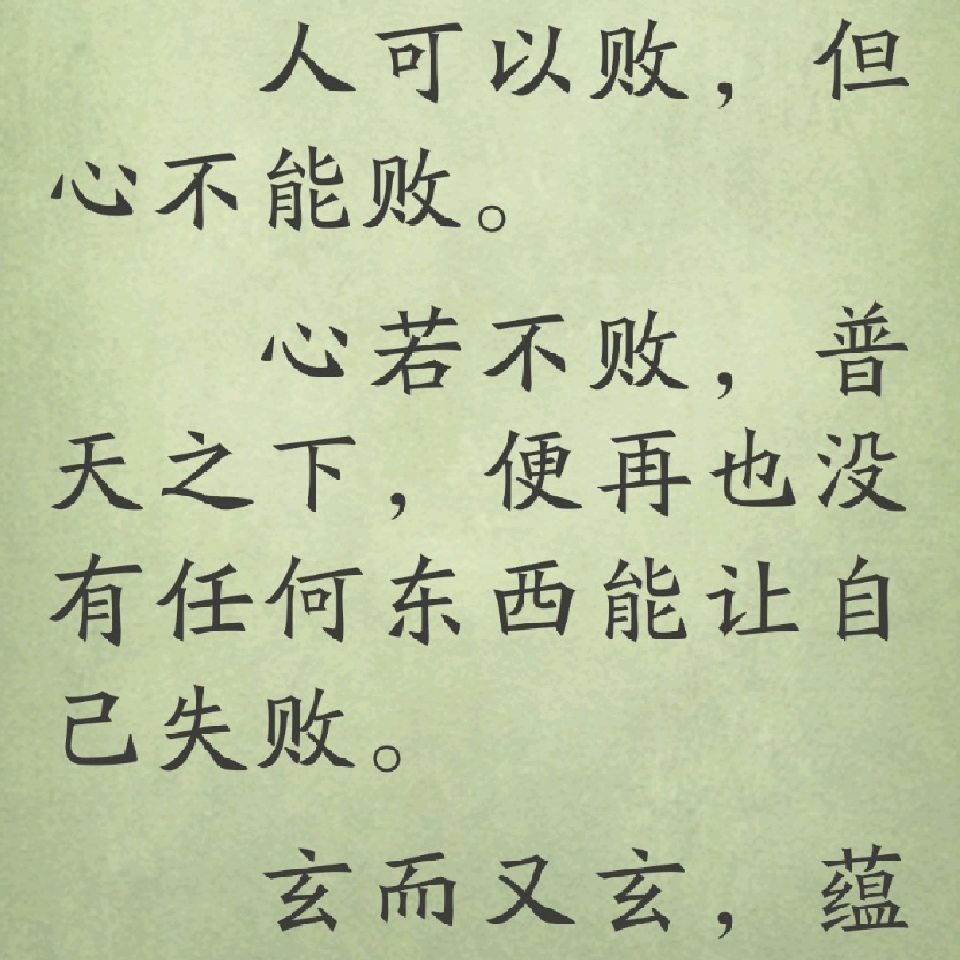 人可以败，但
心不能败。
心若不败，普
天之下，便再也没
有任何东西能让自
己失败。
玄而又玄，蕴